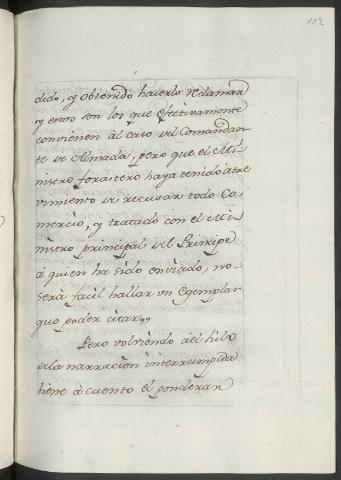 102
dido, y obtenido hacerlo reclamar
y estos son los que efectivamente
convienen àl caso del Comandan-
te de Almada, pero que el Mi-
nistro forastero haya tenido atre-
vimiento de recusar todo Co-
mercio, y tratado con el Mi-
nistro principal del Principe
à quien ha sido enviado, no
serà facil hallar un Egemplar
que poder citar,,
Pero volviendo àel hilo
de la narraciòn interrumpida
biene à cuento el ponderar